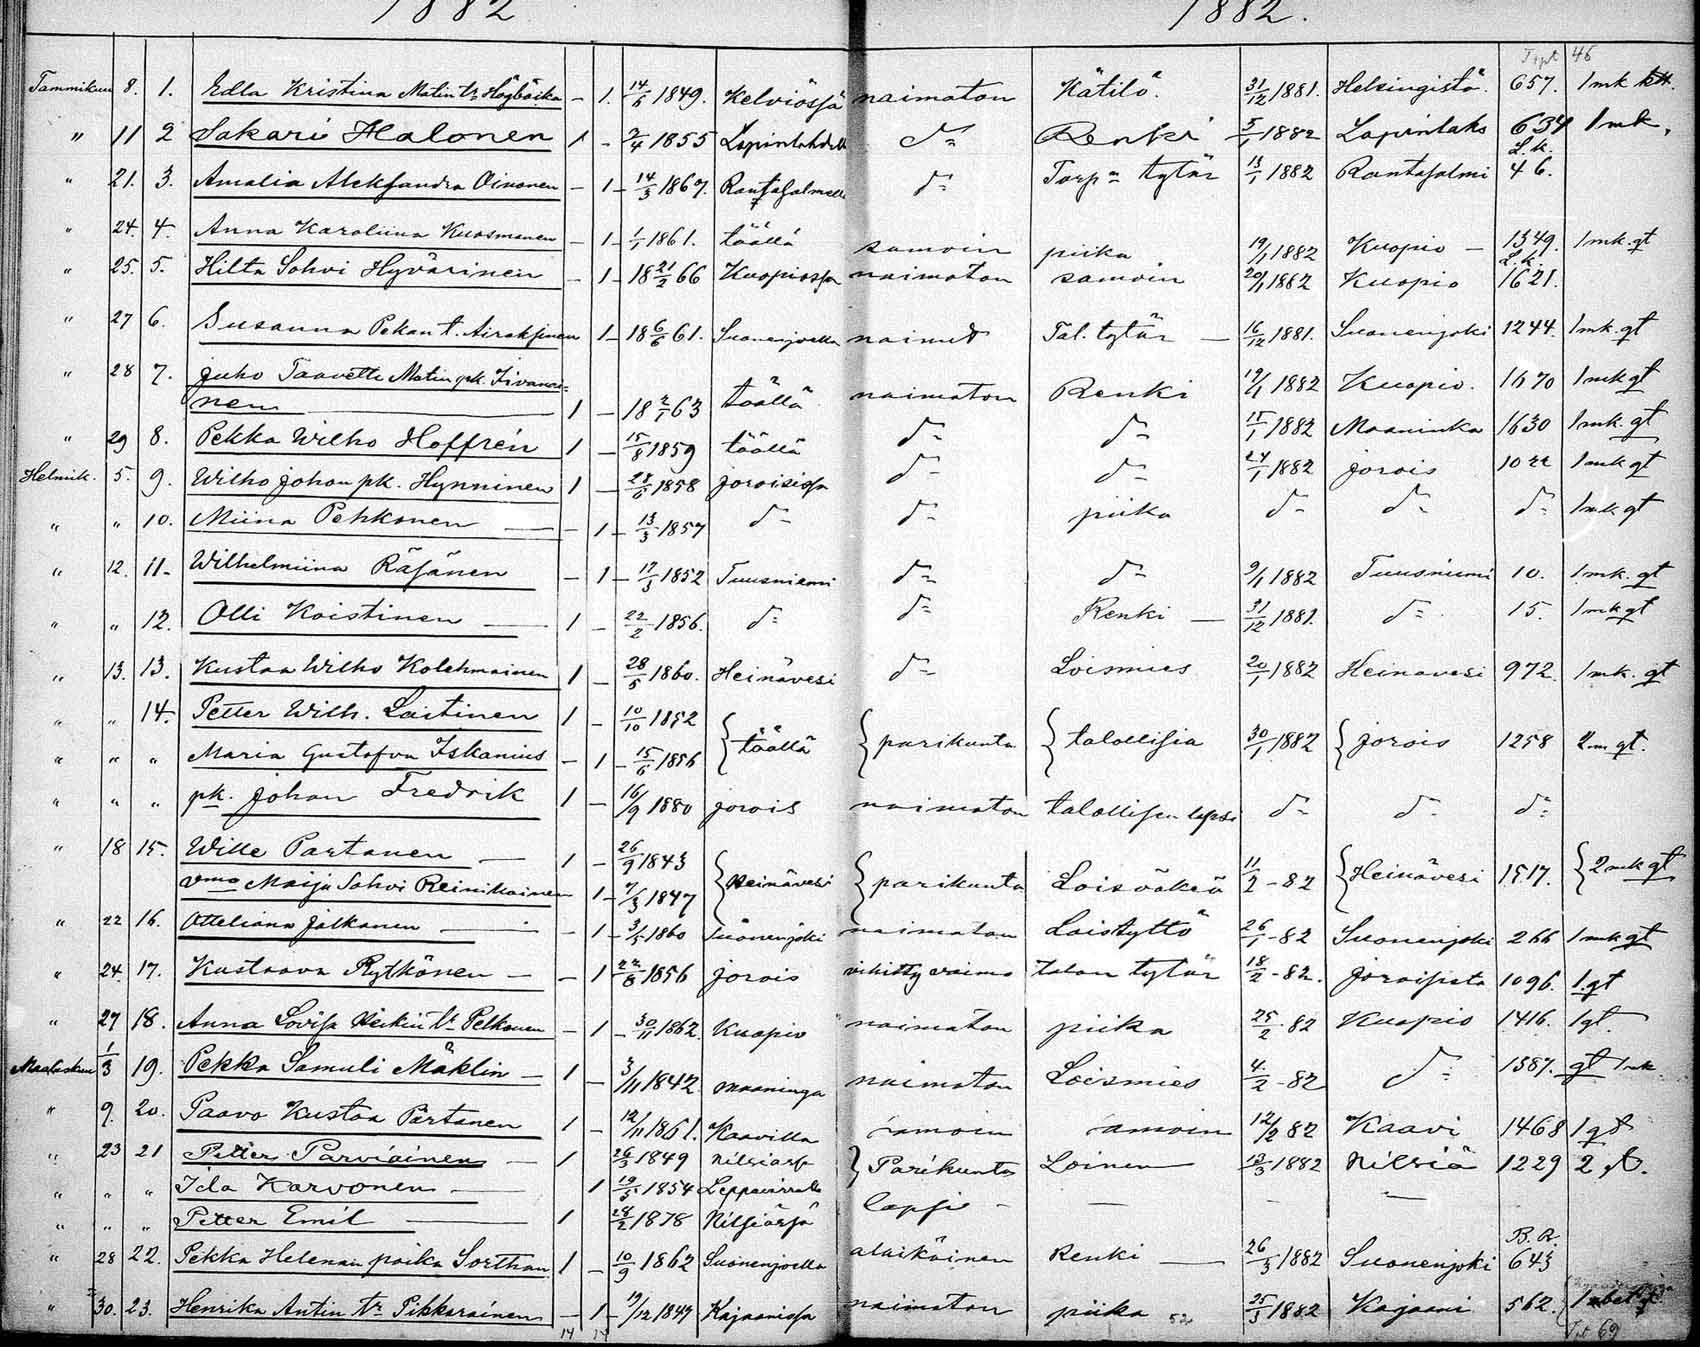 1882
1882.
46
Tammikuu 8. 1. Edla Kristina Matin tr Högbäcka – 1. 14/6 1849. Kelviössä naimaton Kätilö 31/12 1881. Helsingistä 657. 1 mk
" 11 2 Sakari Halonen 1 - 2/4 1855 d:o Renki 5/1 1882 Lapinlaks 634 1 mk.
L.k.
" 21. 3. Amalia Aleksandra Oinonen – 1 – 14/3 1867. Rantasalmella d:o Torp:n tytär 13/1 1882 Rantasalmi 46.
" 24. 4. Anna Karoliina Kuosmanen – 1 – 1/1 1861. täällä samoin piika 19/1 1882 Kuopio – 1349. 1 mk. gt
L.k.
" 25. 5. Hilta Sohvi Hyvärinen – 1 – 18 21/2 66 Kuopiossa naimaton samoin 20/1 1882 Kuopio 1621.
" 27 6. Susanna Pekan t. Airaksinen 1 – 18 6/6 61. Suonenjoella naimat Tal. tytär – 16/12 1881. Suonenjoki 1244. 1 mk. gt
" 28 7. Juho Taavetti Matin pk. Iivanai-
nen 1 – 18 2/1 63 täällä naimaton Renki 19/1 1882 Kuopio. 1670 1 mk gt
" 29 8. Pekka Wilho Hoffrén 1 – 15/8 1859 täällä d:o d:o 15/1 1882 Maaninka 1630 1 mk. gt
Helmik. 5. 9. Wilho Johan pk. Hynninen 1 – 28/6 1858 Joroisissa d:o d:o 24/1 1882 Jorois 1022 1 mk gt
" " 10. Miina Pehkonen – – 1 – 13/3 1857 d:o d:o piika d:o d:o d:o 1 mk gt
" 12. 11. Wilhelmiina Räsänen – 1 – 17/3 1852 Tuusniemi d:o d:o 9/1 1882 Tuusniemi 10. 1 mk. gt
" " 12. Olli Koistinen – 1 – 22/2 1856. d:o d:o Renki – 31/12 1881. d:o 15. 1 mk gt
" 13. 13. Kustaa Wilho Kolehmainen 1 – 28/5 1860. Heinävesi d:o Loismies 20/1 1882 Heinavesi 972. 1 mk. gt
" " 14. Petter Wilh. Laitinen 1 – 10/10 1852
" " " Maria Gustafva Iskanius – 1 – 15/6 1856 täällä parikunta talollisia 30/1 1882 Jorois 1258 2 m gt.
" " " pk. Johan Fredrik 1 – 16/9 1880 Jorois naimaton talollisen lapsi d:o d:o d:o
" 18 15. Wille Partanen – 1 – 26/9 1843
vmo Maija Sohvi Reinikainen 1 – 7/3 1847 Heinävesi parikunta Loisväkeä 11/2 – 82 Heinävesi 1517. 2 mk gt
" 22 16. Otteliana Jalkanen – – 1 – 3/5 1860 Suonenjoki naimaton Loistyttö 26/1 – 82 Suonenjoki 266 1 mk gt
" 24. 17. Kustaava Rytkönen – – 1 22/8 1856 Jorois vihitty vaimo talon tytär 18/2 – 82. Joroisista 1096. 1 gt
" 27 18. Anna Lovisa Heikin tr Pelkonen – 1 – 30/11 1862. Kuopio naimaton piika 25/2 82 Kuopio 1416. 1 gt.
Maaliskuu 1/3 19. Pekka Samuli Mäklin – 1 – 3/11 1842. Maaninga naimaton Loismies 4./2 – 82 d:o 1587. gt 1 mk
" 9. 20. Paavo Kustaa Partanen 1 – 12/11 1861. Kaavilla samoin samoin 12/2 82 Kaavi 1468 1 gt
" 23 21 Petter Parviainen – 1 26/3 1849 Nilsiäss Parikunta Loinen 13/3 1882 Nilsiä 1229 2 gt.
" " " Ida Karvonen – 1 19/5 1854 Leppävirralla lapsi – – – –
" " " Petter Emil – 1 28/2 1878 Nilsiässä
B.R.
" 28 22. Pekka Helenan poika Sorthan 1 – 10/9 1862 Suonenjoella alaikäinen Renki – 26/3 1882 Suonenjoki 643
" 30. 23. Henrika Antin tr Pikkarainen – 1 – 19/12 1847 Kajaanissa naimaton piika 25/3 1882 Kajaani 562.
14 52 69